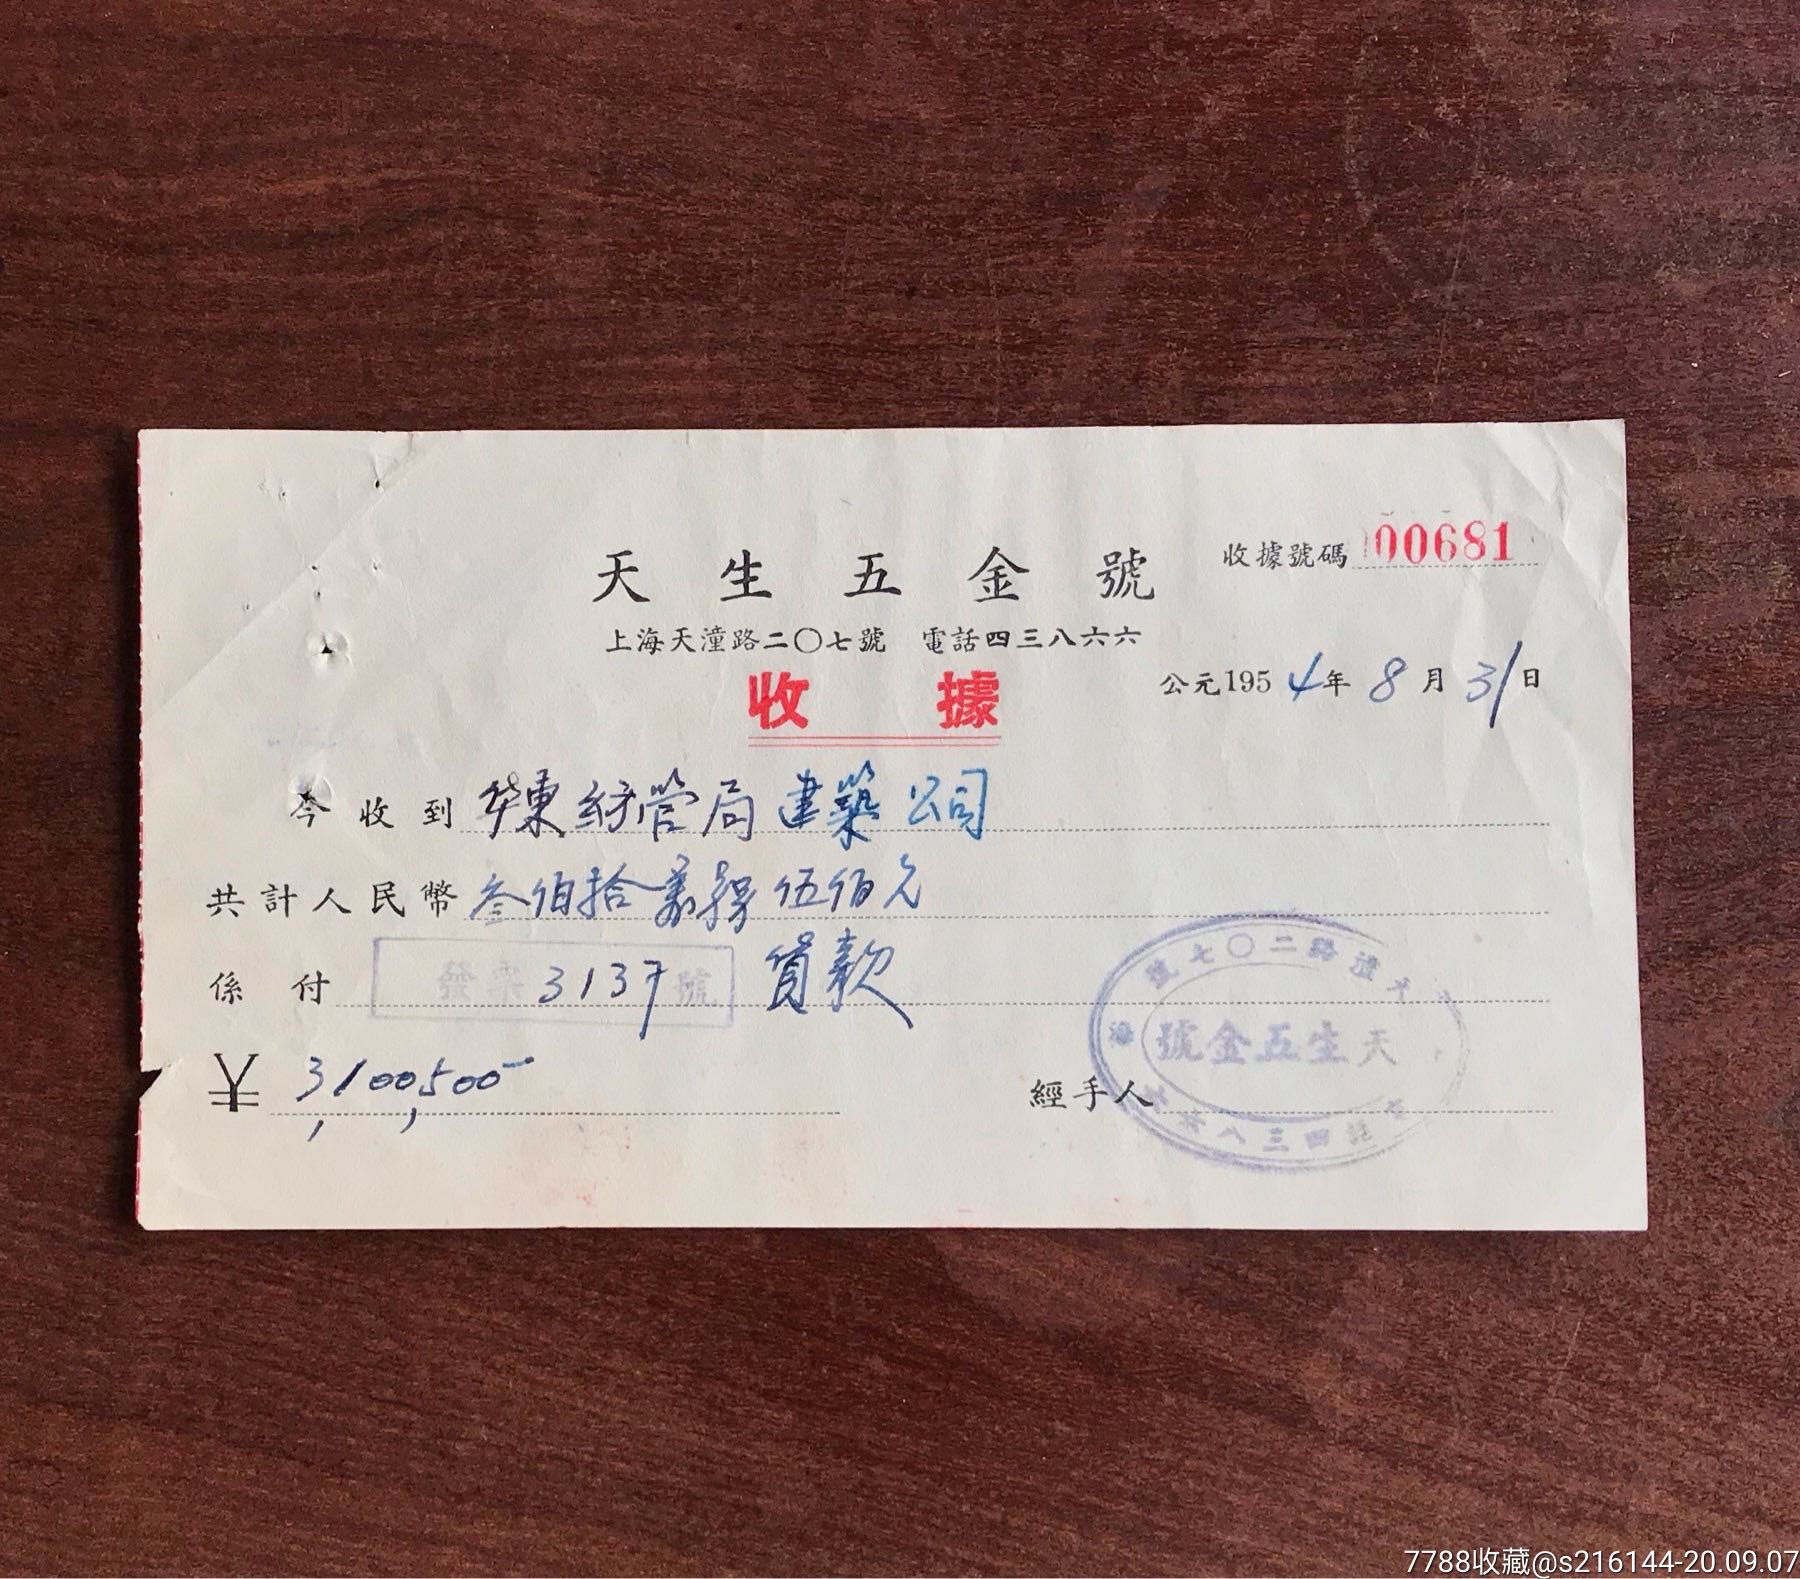 收據號碼 00681
天生五金號
上海天潼路二〇七號 電話四三八六六
收據
公元1954年8月31日
今收到 华東紡管局建築公司
共計人民幣 叁佰拾萬零伍佰元
係付 發票3137號 貨款
¥ 3,100,500-
經手人
海天潼路二〇七號
天生五金號
話四三八六六
7788收藏@s216144-20.09.07